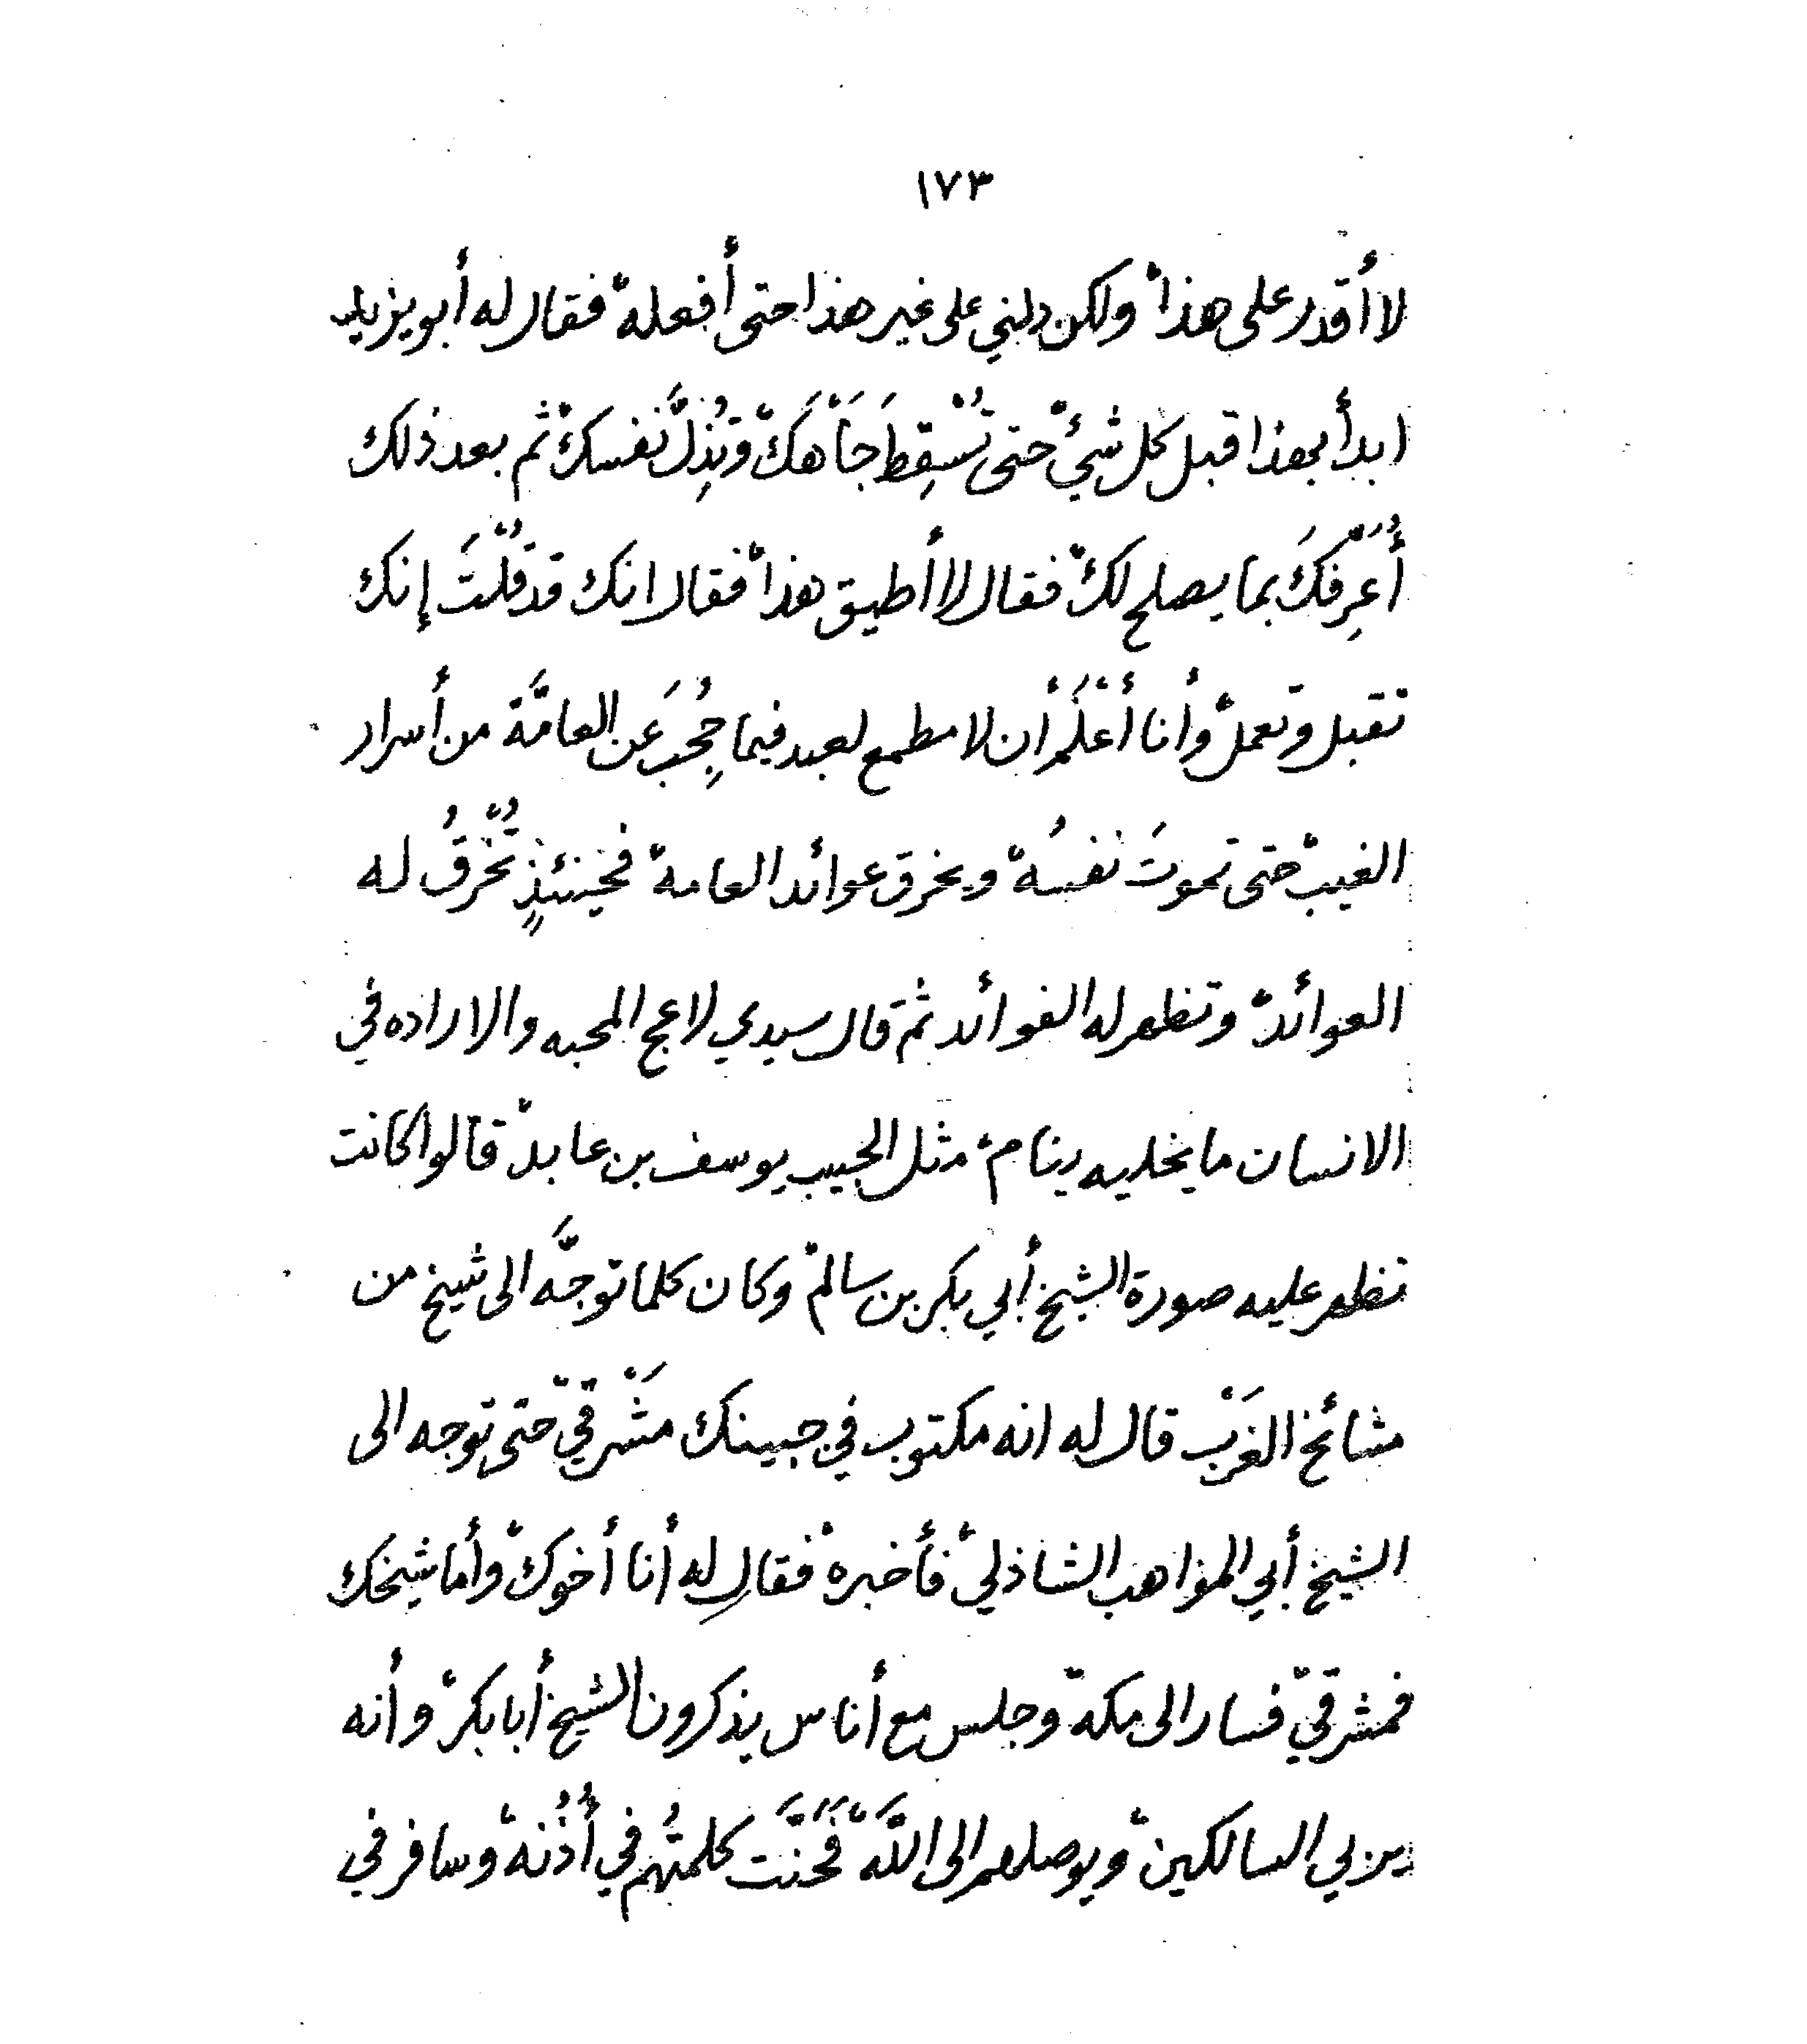 ١٧٣
لا أقدر على هذا ولكن دلني على غير هذا حتى أفعله فقال له أبو يزيد
ابدأ بهذا قبل كل شيئ حتى تُسْقِطَ جَاهَكَ وتُذِلَّ نفسك ثم بعد ذلك
أُعَرِّفكَ بما يصلح لك فقال لا أطيق هذا فقال انك قد قُلْتَ إنك
تقبل وتعمل وأنا أَعْلَمُ أن لا مطمع لعبد فيما حُجِبَ عَن العامَّة من أسرار
الغيب حتى تموتَ نفسُه ويخرق عوائد العامة فحينئذٍ تُخْرقُ له
العوائد وتظهر له الفوائد ثم قال سيدي لاعج المحبه والاراده في
الانسان ما يخليه ينام مثل الحبيب يوسف بن عابد قالوا كانت
تظهر عليه صورة الشيخ أبي بكر بن سالم وكان كلما توجَّه الى شيخ من
مشائخ الغَرْب قال له انه مكتوب في جبينك مَشْرقي حتى توجه الى
الشيخ أبي المواهب الشاذلي فأخبره فقال له أنا أخوك وأما شيخك
فمشرقي فسار الى مكة وجلس مع أناس يذكرون الشيخ أبا بكر وأنه
يربي السالكين ويوصلهم الى اللَّه فَحَنَّت كلمتُهم في أُذُنه وسافر في